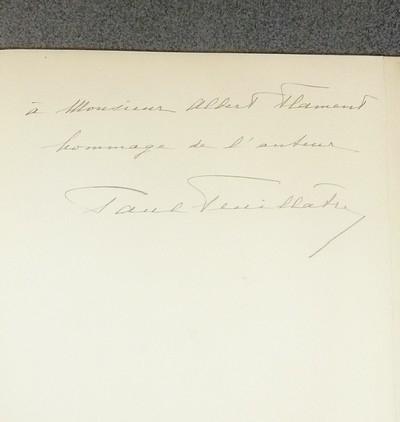 à Monsieur Albert Flament
hommage de l'auteur
Paul Feuillâtre